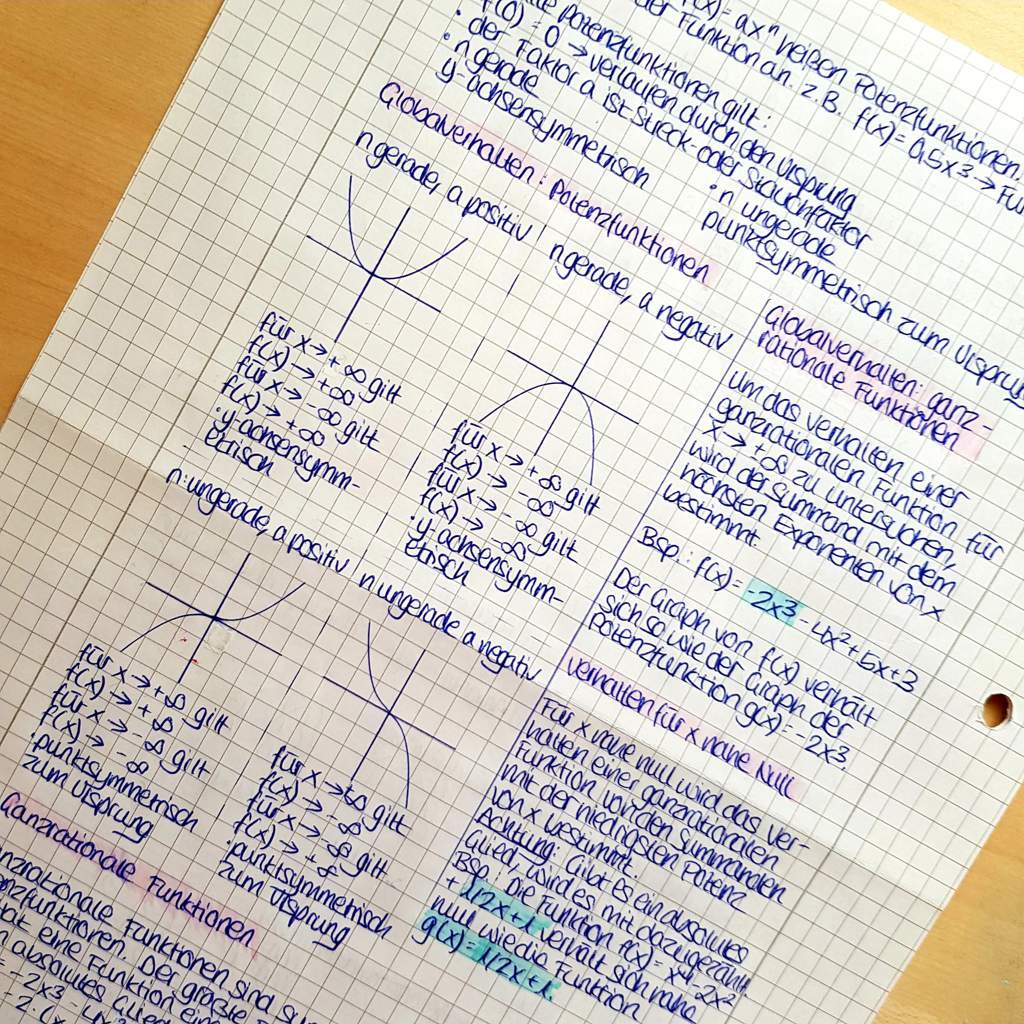 f(x) = ax^n heißen Potenzfunktionen.
der Funktion an. z.B. f(x) = 0,5x³ →
Potenzfunktionen gilt:
· f(0) = 0 → verlaufen durch den Ursprung
· der Faktor a ist Streck- oder Stauchfaktor
· n gerade
y-achsensymmetrisch
· n ungerade
punktsymmetrisch zum Ursprung
Globalverhalten: Potenzfunktionen
n gerade, a positiv
für x → +∞ gilt
f(x) → +∞
für x → -∞ gilt
f(x) → +∞
· y-achsensymm-
etrisch
n gerade, a negativ
für x → +∞ gilt
f(x) → -∞
für x → -∞ gilt
f(x) → -∞
· y-achsensymm-
etrisch
n: ungerade, a positiv
für x → +∞ gilt
f(x) → +∞
für x → -∞ gilt
f(x) → -∞
· punktsymmetrisch
zum Ursprung
n ungerade a negativ
für x → ∞ gilt
f(x) → -∞
für x → -∞ gilt
f(x) → +∞
· punktsymmetrisch
zum Ursprung
Globalverhalten: ganz-
rationale Funktionen
Um das Verhalten einer
ganzrationalen Funktion für
x → +∞ zu untersuchen,
wird der Summand mit dem
höchsten Exponenten von x
bestimmt.
Bsp.: f(x) = -2x³ - 4x² + 5x + 3
Der Graph von f(x) verhält
sich so wie der Graph der
Potenzfunktion g(x) = -2x³.
Verhalten für x nahe Null
Für x nahe null wird das Ver-
halten einer ganzrationalen
Funktion von den Summanden
mit der niedrigsten Potenz
von x bestimmt.
Achtung: Gibt es ein absolutes
Glied, wird es mit dazugezählt.
Bsp.: Die Funktion f(x) = x⁴ - 2x²
verhält sich nahe
null wie die Funktion
g(x) =
Ganzrationale Funktionen
Funktionen sind
Der größte
eine Funktion ein
absolutes Glied
-2x³ - 4x²